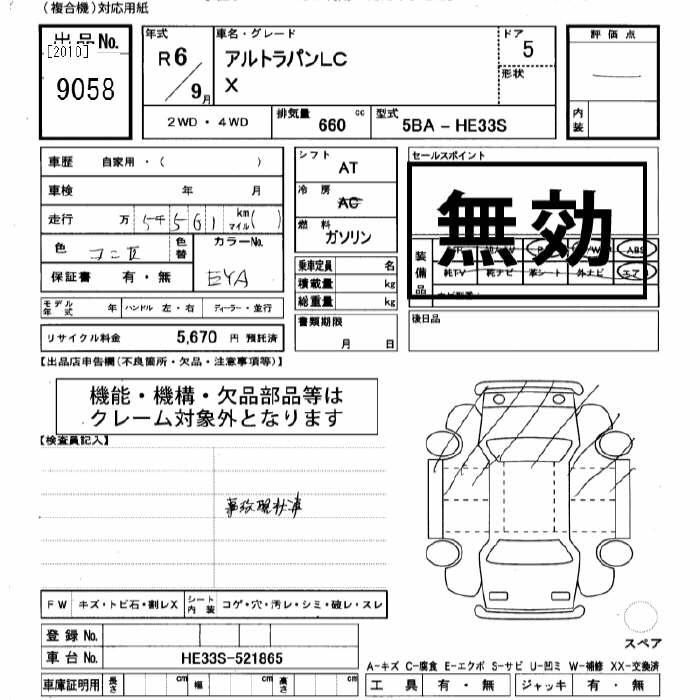 (複合機)対応用紙
出品No.
[2010]
9058
年式
R6/9月
車名・グレード
アルトラパンLC
X
ドア
5
形状
評価点
内装
2WD・4WD
排気量 660 cc
型式 5BA-HE33S
車歴 自家用・( )
車検 年 月
走行 万 561 km マイル ( )
色 コニ
色替
カラーNo.
保証書 有・無
モデル年式 年 ハンドル 左・右 ディーラー・並行
リサイクル料金 5,670 円 預託済
シフト
AT
冷房
AC
燃料
ガソリン
乗車定員 名
積載量 kg
総重量 kg
書類期限
月 日
セールスポイント
無効
装備品
ABS
純TV 純ナビ 革シート 外ナビ エア
後日品
【出品店申告欄(不良箇所・欠品・注意事項等)】
機能・機構・欠品部品等は
クレーム対象外となります
【検査員記入】
事故現状車
FW キズ・トビ石・割レX シート内装 コゲ・穴・汚レ・シミ・破レ・スレ
登録No.
車台No. HE33S-521865
車庫証明用 長さ cm 幅 cm 高さ cm
スペア
A-キズ C-腐食 E-エクボ S-サビ U-凹ミ W-補修 XX-交換済
工具 有・無 ジャッキ 有・無